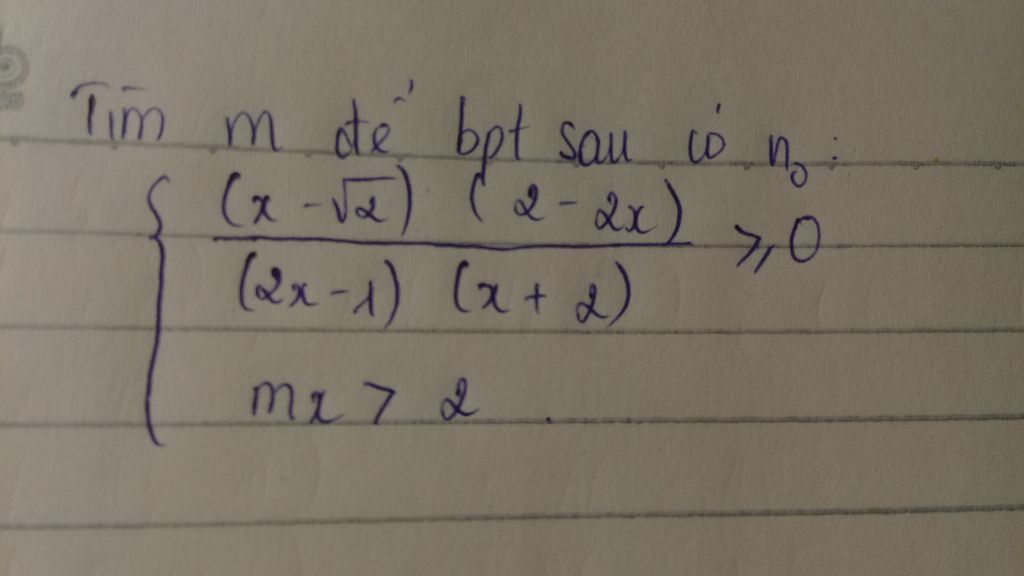 Tìm m để bpt sau có n₀ :
(x - √2) (2 - 2x)
⩾ 0
(2x - 1) (x + 2)
mx > 2 .